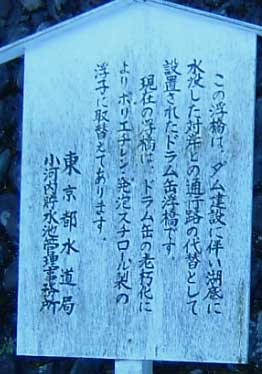 この浮橋は、ダム建設に伴い湖底に
水没した対岸との通行路の代替として
設置されたドラム缶浮橋です。
現在の浮橋は、ドラム缶の老朽化に
よりポリエチレン・発泡スチロール製の
浮子に取替えてあります。
東京都水道局
小河内貯水池管理事務所